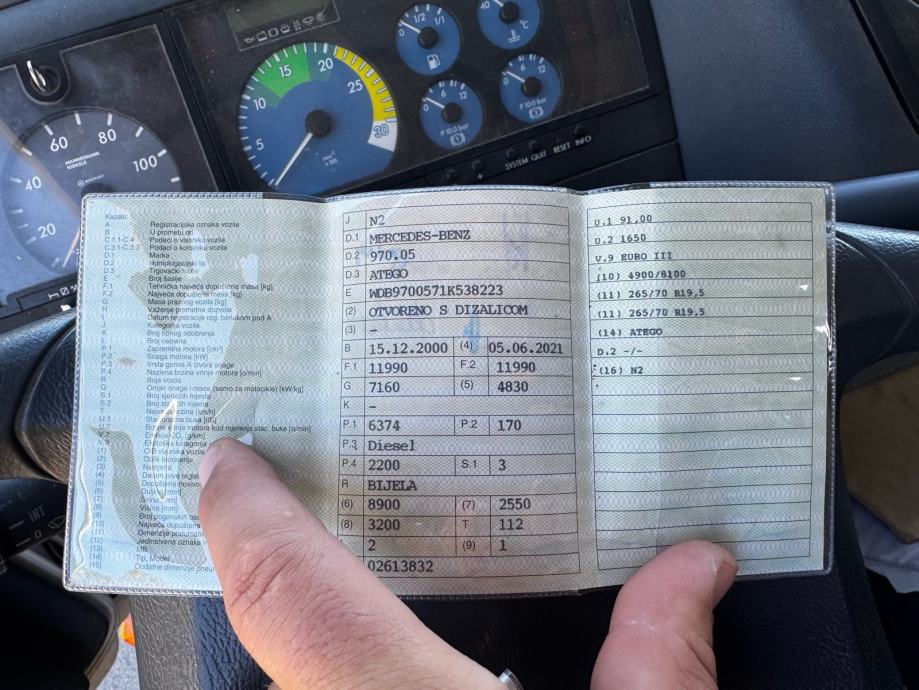 1/2 1/1
40 °C
15 20
10 25
5 30
min⁻¹ x 100
0 6 12
P 10.0 bar
0 6 12
P 10.0 bar
SYSTEM QUIT RESET INFO
20 40 60 80 100
MANNESMANN
KIENZLE
INT
Kazalo:
A Registracijska oznaka vozila
B U prometu od
C.1.1-C.4 Podaci o vlasniku vozila
C.3.1-C.3.3 Podaci o korisniku vozila
D.1 Marka
D.2 Homologacijski tip
D.3 Trgovački naziv
E Broj šasije
F.1 Tehnička najveća dopuštena masa [kg]
F.2 Najveća dopuštena masa [kg]
G Masa praznog vozila [kg]
H Važenje prometne dozvole
I Datum registracije reg. oznakom pod A
J Kategorija vozila
K Broj tipnog odobrenja
L Broj osovina
P.1 Zapremina motora [cm³]
P.2 Snaga motora [kW]
P.3 Vrsta goriva ili izvora snage
P.4 Nazivna brzina vrtnje motora [o/min]
R Boja vozila
Q Omjer snage i mase (samo za motocikle) [kW/kg]
S.1 Broj sjedećih mjesta
S.2 Broj stajaćih mjesta
T Najveća brzina [km/h]
U.1
U.2 motora kod mjerenja stac. buke [o/min]
V.7 [g/km]
V.9 Ekološka kategorija
(1)
(2) Oblik karoserije
(3) Namjena
(4) Datum prve
(5) Dopuštena
(6) [mm]
(7) Širina [mm]
(8) Visina [mm]
(9) Broj pogonskih
(10) Najveća dopuštena
(11) Dimenzije
(12) Jedinstvena oznaka
(13) MB
(14) Tip, Model
(15) Dodatne dimenzije
J N2
D.1 MERCEDES-BENZ
D.2 970.05
D.3 ATEGO
E WDB9700571K538223
(2) OTVORENO S DIZALICOM
(3) -
B 15.12.2000 (4) 05.06.2021
F.1 11990 F.2 11990
G 7160 (5) 4830
K -
P.1 6374 P.2 170
P.3 Diesel
P.4 2200 S.1 3
R BIJELA
(6) 8900 (7) 2550
(8) 3200 T 112
2 (9) 1
02613832
U.1 91,00
U.2 1650
V.9 EURO III
(10) 4900/8100
(11) 265/70 R19,5
(11) 265/70 R19,5
(14) ATEGO
D.2 -/-
(16) N2